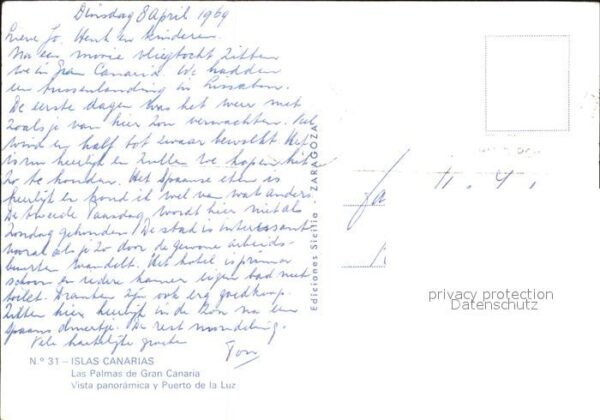 Dinsdag 8 April 1969
Lieve Jo, Henk en kinderen.
Na een mooie vliegtocht zitten
we in Gran Canaria. We hadden
een tussenlanding in Lissabon.
De eerste dagen was het weer niet
zoals je van hier zou verwachten. Veel
wind en half tot zwaar bewolkt. Het
is nu heerlijk en zullen we hopen het
zo te houden. Het Spaanse eten is
heerlijk en vond ik wel van wat anders.
De tweede Paasdag wordt hier niet als
zondag gehouden. De stad is interessant
vooral als je zo door de gewone arbeids-
buurten wandelt. Het hotel is prima
schoon en iedere kamer eigen bad met
toilet. Dranken zijn ook erg goedkoop.
Zitten hier heerlijk in de zon na een
Spaans dineetje. De rest mondeling.
Vele hartelijke groeten
Ton
Nº 31 – ISLAS CANARIAS
Las Palmas de Gran Canaria
Vista panorámica y Puerto de la Luz
Ediciones Sicilia - ZARAGOZA
privacy protection
Datenschutz